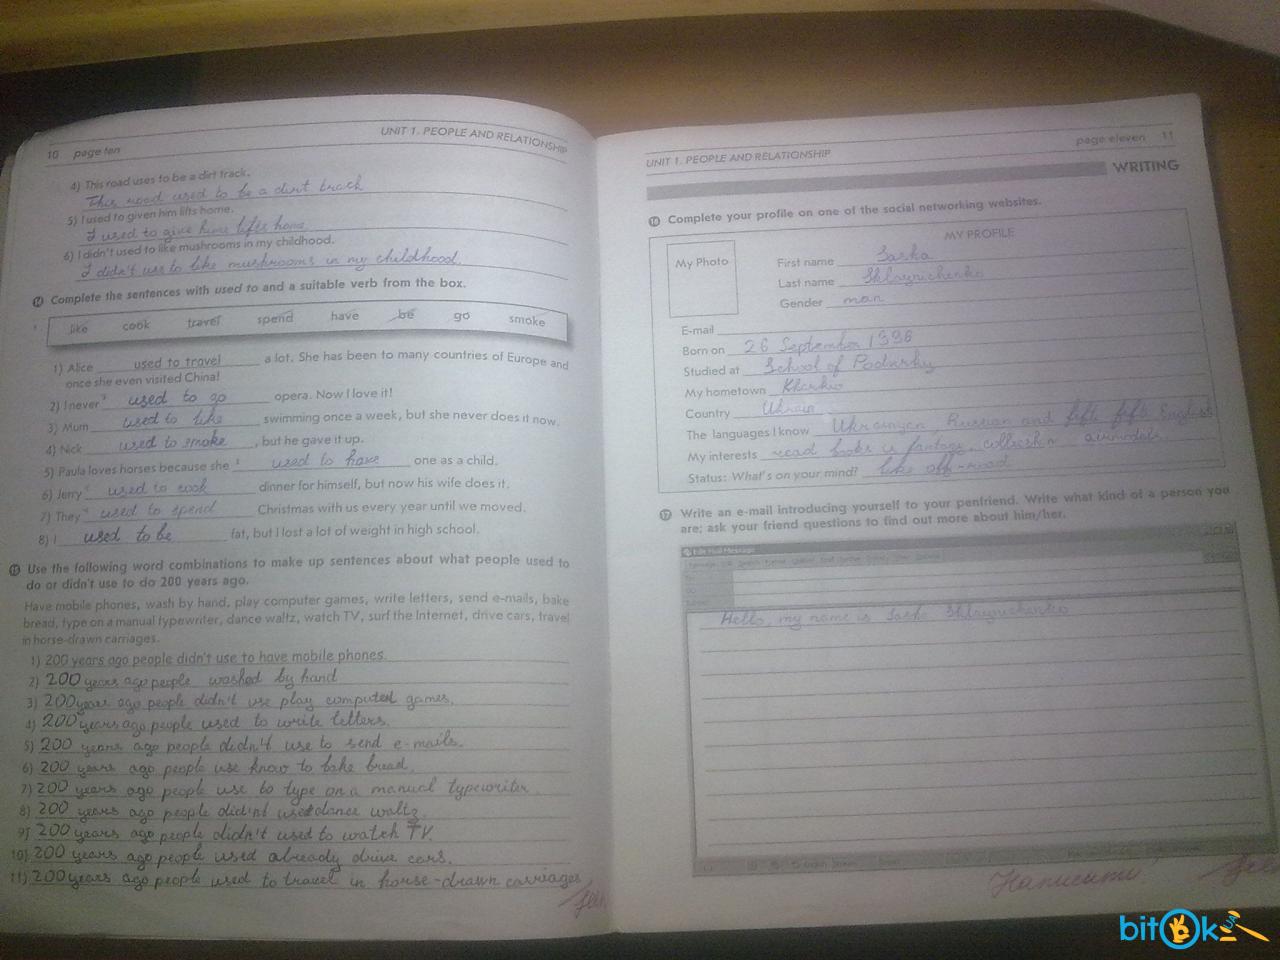 10 page ten
UNIT 1. PEOPLE AND RELATIONSHIP
4) This road uses to be a dirt track.
This road used to be a dirt track
5) I used to given him lifts home.
I used to give him lifts home
6) I didn't used to like mushrooms in my childhood.
I didn't use to like mushrooms in my childhood.
14 Complete the sentences with used to and a suitable verb from the box.
like cook travel spend have be go smoke
1) Alice used to travel a lot. She has been to many countries of Europe and
once she even visited China!
2) I never used to go opera. Now I love it!
3) Mum used to like swimming once a week, but she never does it now.
4) Nick used to smoke, but he gave it up.
5) Paula loves horses because she used to have one as a child.
6) Jerry used to cook dinner for himself, but now his wife does it.
7) They used to spend Christmas with us every year until we moved.
8) I used to be fat, but I lost a lot of weight in high school.
15 Use the following word combinations to make up sentences about what people used to
do or didn't use to do 200 years ago.
Have mobile phones, wash by hand, play computer games, write letters, send e-mails, bake
bread, type on a manual typewriter, dance waltz, watch TV, surf the Internet, drive cars, travel
in horse-drawn carriages.
1) 200 years ago people didn't use to have mobile phones.
2) 200 years ago people washed by hand
3) 200 years ago people didn't use play computer games.
4) 200 years ago people used to write letters.
5) 200 years ago people didn't use to send e-mails.
6) 200 years ago people use know to bake bread.
7) 200 years ago people use to type on a manual typewriter
8) 200 years ago people did'nt used dance waltz
9) 200 years ago people didn't used to watch TV.
10) 200 years ago people used already drive cars.
11) 200 years ago people used to travel in horse-drawn carriages
UNIT 1. PEOPLE AND RELATIONSHIP
page eleven 11
WRITING
16 Complete your profile on one of the social networking websites.
MY PROFILE
My Photo
First name Sasha
Last name
Gender man
E-mail
Born on 26 September 1996
Studied at School of
My hometown Kharkiv
Country Ukrain
The languages I know Russian and English
My interests read books
Status: What's on your mind? like off-road
17 Write an e-mail introducing yourself to your penfriend. Write what kind of a person you
are; ask your friend questions to find out more about him/her.
Edit Mail Message
Hello, my name is Sasha
Написати
bitOk UA